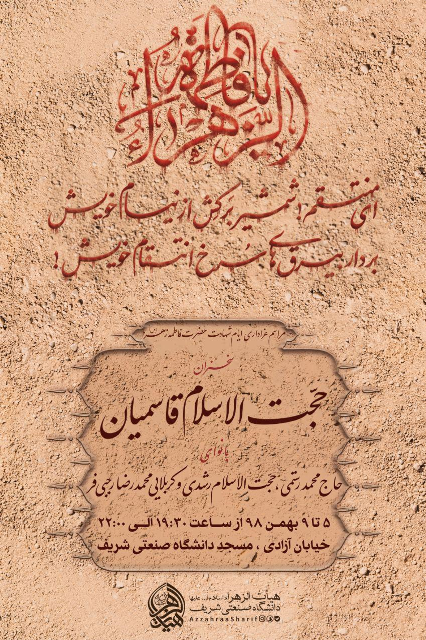 یا فاطمة الزهراء
ای منتقم! شمشیر برکش از نیام خویش
بردار بیرق‌های سرخ انتقام خویش!
مراسم عزاداری ایام شهادت حضرت فاطمه زهرا
سخنران
حجت الاسلام قاسمیان
بانوای
حاج محمد رستمی، حجت الاسلام رشدی و کربلایی محمدرضا رجبی‌فر
۵ تا ۹ بهمن ۹۸ از ساعت ۱۹:۳۰ الی ۲۲:۰۰
خیابان آزادی، مسجد دانشگاه صنعتی شریف
هیأت الزهرا سلام الله علیها
دانشگاه صنعتی شریف
AzzahraaSharif